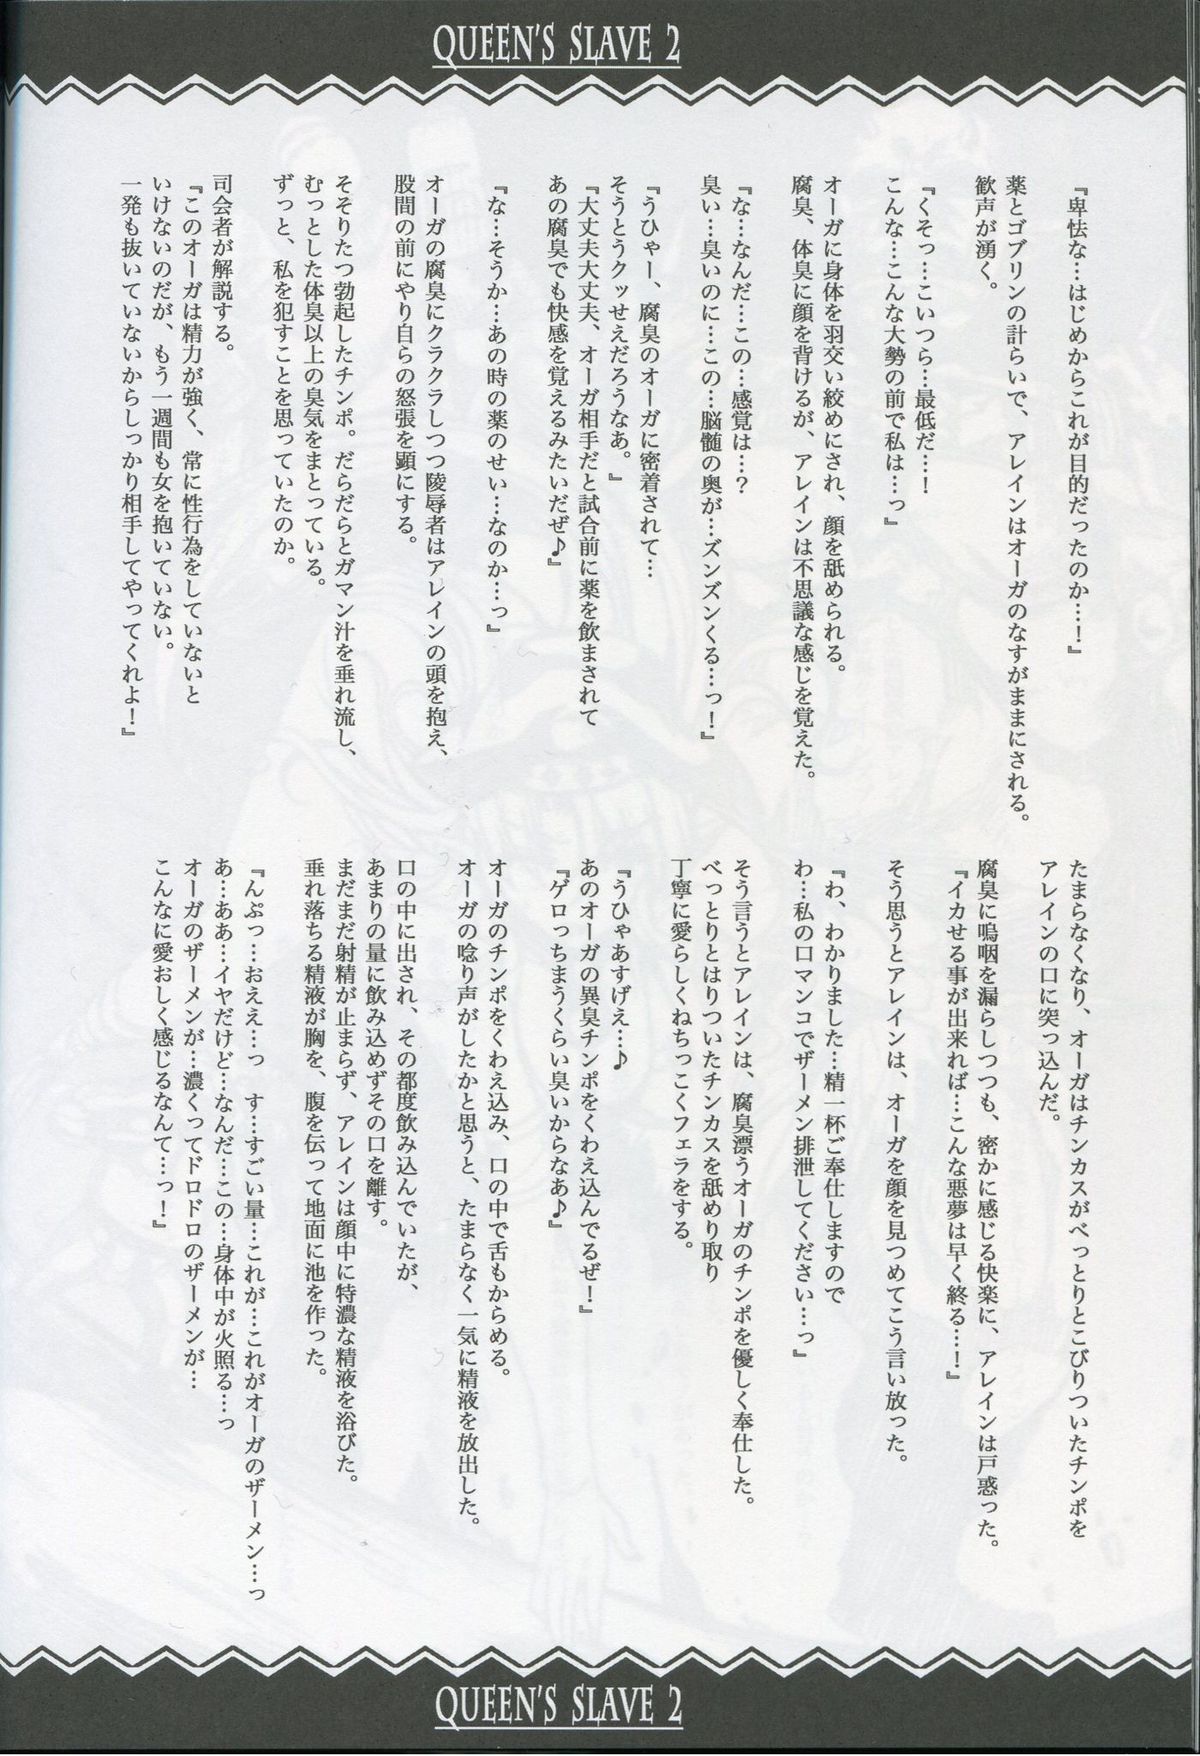 QUEEN'S SLAVE 2
『卑怯な…はじめからこれが目的だったのか…！』
薬とゴブリンの計らいで、アレインはオーガのなすがままにされる。
歓声が湧く。
『くそっ…こいつら…最低だ…！
こんな…こんな大勢の前で私は…っ』
オーガに身体を羽交い絞めにされ、顔を舐められる。
腐臭、体臭に顔を背けるが、アレインは不思議な感じを覚えた。
『な…なんだ…この…感覚は…？
臭い…臭いのに…この…脳髄の奥が…ズンズンくる…っ！』
『うひゃー、腐臭のオーガに密着されて…
そうとうクッせえだろうなあ。』
『大丈夫大丈夫、オーガ相手だと試合前に薬を飲まされて
あの腐臭でも快感を覚えるみたいだぜ♪』
『な…そうか…あの時の薬のせい…なのか…っ』
オーガの腐臭にクラクラしつつ陵辱者はアレインの頭を抱え、
股間の前にやり自らの怒張を顕にする。
そそりたつ勃起したチンポ。だらだらとガマン汁を垂れ流し、
むっとした体臭以上の臭気をまとっている。
ずっと、私を犯すことを思っていたのか。
司会者が解説する。
『このオーガは精力が強く、常に性行為をしていないと
いけないのだが、もう一週間も女を抱いていない。
一発も抜いていないからしっかり相手してやってくれよ！』
たまらなくなり、オーガはチンカスがべっとりとこびりついたチンポを
アレインの口に突っ込んだ。
腐臭に嗚咽を漏らしつつも、密かに感じる快楽に、アレインは戸惑った。
『イカせる事が出来れば…こんな悪夢は早く終る…！』
そう思うとアレインは、オーガを顔を見つめてこう言い放った。
『わ、わかりました…精一杯ご奉仕しますので
わ…私の口マンコでザーメン排泄してください…っ』
そう言うとアレインは、腐臭漂うオーガのチンポを優しく奉仕した。
べっとりとはりついたチンカスを舐めり取り
丁寧に愛らしくねちっこくフェラをする。
『うひゃあすげえ…♪
あのオーガの異臭チンポをくわえ込んでるぜ！』
『ゲロっちまうくらい臭いからなあ♪』
オーガのチンポをくわえ込み、口の中で舌もからめる。
オーガの唸り声がしたかと思うと、たまらなく一気に精液を放出した。
口の中に出され、その都度飲み込んでいたが、
あまりの量に飲み込めずその口を離す。
まだまだ射精が止まらず、アレインは顔中に特濃な精液を浴びた。
垂れ落ちる精液が胸を、腹を伝って地面に池を作った。
『んぷっ…おええ…っ　す…すごい量…これが…これがオーガのザーメン…っ
あ…ああ…イヤだけど…なんだ…この…身体中が火照る…っ
オーガのザーメンが…濃くってドロドロのザーメンが…
こんなに愛おしく感じるなんて…っ！』
QUEEN'S SLAVE 2